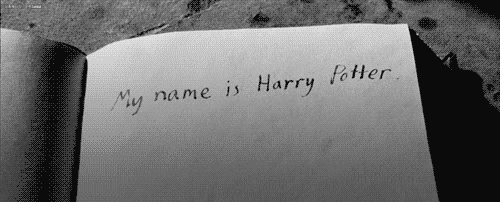 My name is Harry Potter.